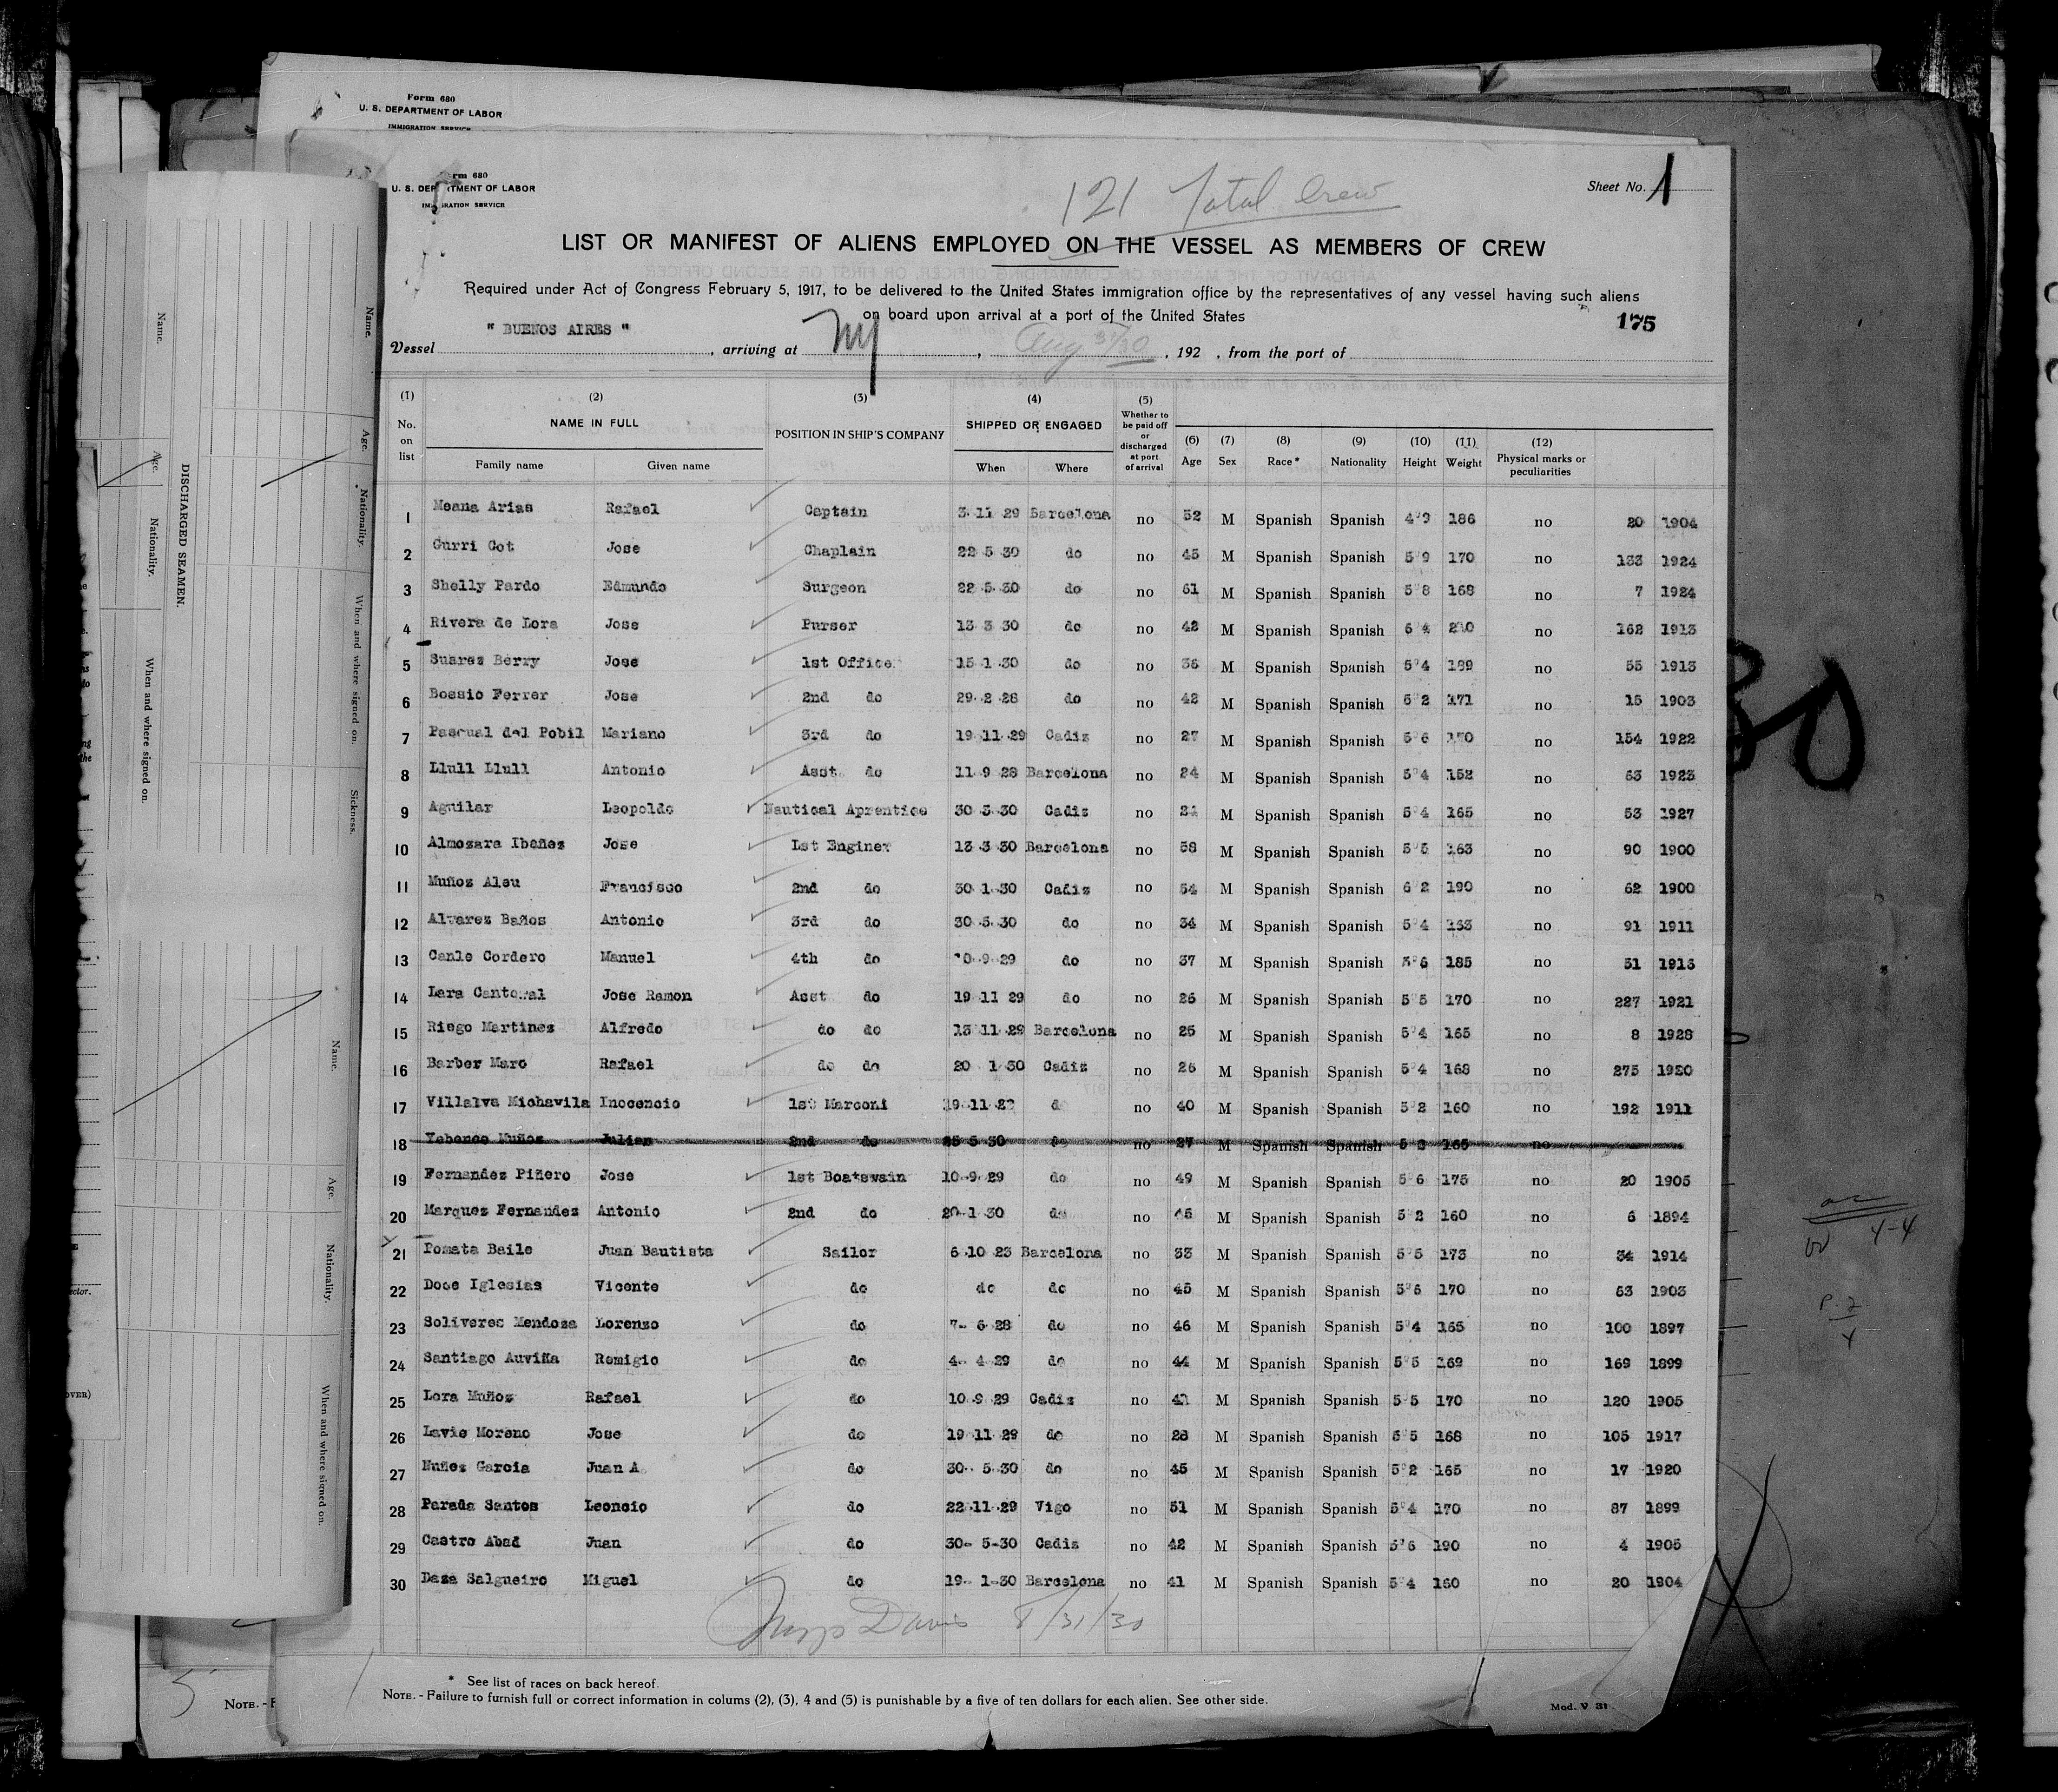 Form 680
U. S. DEPARTMENT OF LABOR
IMMIGRATION SERVICE
rm 680
U. S. DEPARTMENT OF LABOR
IMMIGRATION SERVICE
Sheet No. 1
121 Total Crew
LIST OR MANIFEST OF ALIENS EMPLOYED ON THE VESSEL AS MEMBERS OF CREW
Required under Act of Congress February 5, 1917, to be delivered to the United States immigration office by the representatives of any vessel having such aliens
on board upon arrival at a port of the United States
175
Vessel " BUENOS AIRES ", arriving at NY, Aug 31/30, 192 , from the port of
(1) No. on list (2) NAME IN FULL Family name Given name (3) POSITION IN SHIP'S COMPANY (4) SHIPPED OR ENGAGED When Where (5) Whether to be paid off or discharged at port of arrival (6) Age (7) Sex (8) Race* (9) Nationality (10) Height (11) Weight (12) Physical marks or peculiarities
1 Meana Arias Rafael Captain 3-11 29 Barcelona no 52 M Spanish Spanish 4 9 186 no 20 1904
2 Gurri Cot Jose Chaplain 22 5 30 do no 45 M Spanish Spanish 5 9 170 no 133 1924
3 Shelly Pardo Edmundo Surgeon 22 5 30 do no 61 M Spanish Spanish 5 8 168 no 7 1924
4 Rivera de Lora Jose Purser 13 3 30 do no 42 M Spanish Spanish 6 4 210 no 162 1913
5 Suarez Berry Jose 1st Office 15 1 30 do no 36 M Spanish Spanish 5 4 189 no 55 1913
6 Bossio Ferrer Jose 2nd do 29 2 28 do no 42 M Spanish Spanish 5 2 171 no 15 1903
7 Pascual del Pobil Mariano 3rd do 19 11 29 Cadiz no 27 M Spanish Spanish 5 6 170 no 154 1922
8 Llull Llull Antonio Asst do 11 9 28 Barcelona no 24 M Spanish Spanish 5 4 152 no 63 1923
9 Aguilar Leopoldo Nautical Aprentice 30 5 30 Cadiz no 21 M Spanish Spanish 5 4 165 no 53 1927
10 Almozara Ibañez Jose Lst Enginer 13 3 30 Barcelona no 58 M Spanish Spanish 5 5 163 no 90 1900
11 Muñoz Aleu Francisco 2nd do 30 1 30 Cadiz no 54 M Spanish Spanish 6 2 190 no 62 1900
12 Alvarez Baños Antonio 3rd do 30 5 30 do no 34 M Spanish Spanish 5 4 163 no 91 1911
13 Canle Cordero Manuel 4th do 10 9 29 do no 37 M Spanish Spanish 5 6 185 no 31 1913
14 Lara Cantoral Jose Ramon Asst do 19 11 29 do no 26 M Spanish Spanish 5 5 170 no 227 1921
15 Riego Martinez Alfredo do do 13 11 29 Barcelona no 25 M Spanish Spanish 5 4 165 no 8 1928
16 Barber Maro Rafael do do 20 1 30 Cadiz no 26 M Spanish Spanish 5 4 168 no 275 1920
17 Villalva Michavila Inocencio 1st Marconi 19 11 29 do no 40 M Spanish Spanish 5 2 160 no 192 1911
18 Yebenes Muñoz Julian 2nd do 26 5 30 do no 27 M Spanish Spanish 5 2 165 no
19 Fernandez Piñero Jose 1st Boatswain 10-9 29 do no 49 M Spanish Spanish 5 6 175 no 20 1905
20 Marquez Fernandez Antonio 2nd do 20-1 30 do no 45 M Spanish Spanish 5 2 160 no 6 1894
21 Pomata Baile Juan Bautista Sailor 6 10 23 Barcelona no 33 M Spanish Spanish 5 5 173 no 34 1914
22 Dose Iglesias Vicente do do do no 45 M Spanish Spanish 5 6 170 no 63 1903
23 Soliveres Mendoza Lorenzo do 7- 6 28 do no 46 M Spanish Spanish 5 4 165 no 100 1897
24 Santiago Auviña Remigio do 4- 4 29 do no 44 M Spanish Spanish 5 5 169 no 169 1899
25 Lora Muñoz Rafael do 10 9 29 Cadiz no 41 M Spanish Spanish 5 5 170 no 120 1905
26 Lavie Moreno Jose do 19 11 29 do no 28 M Spanish Spanish 5 5 168 no 105 1917
27 Nuñez Garcia Juan A do 30- 5 30 do no 45 M Spanish Spanish 5 2 165 no 17 1920
28 Parada Santos Leoncio do 22 11 29 Vigo no 51 M Spanish Spanish 5 4 170 no 87 1899
29 Castro Abad Juan do 30- 5-30 Cadiz no 42 M Spanish Spanish 5 6 190 no 4 1905
30 Daza Salgueiro Miguel do 19- 1-30 Barcelona no 41 M Spanish Spanish 5 4 160 no 20 1904
Davis 8/31/30
* See list of races on back hereof.
NOTE. - Failure to furnish full or correct information in colums (2), (3), 4 and (5) is punishable by a five of ten dollars for each alien. See other side.
Mod. V 31
NOTE. - F
DISCHARGED SEAMEN.
Name.
Age.
Nationality.
When and where signed on.
Name.
Age.
Nationality.
When and where signed on.
Sickness.
Name.
Age.
Nationality.
When and where signed on.
4-4